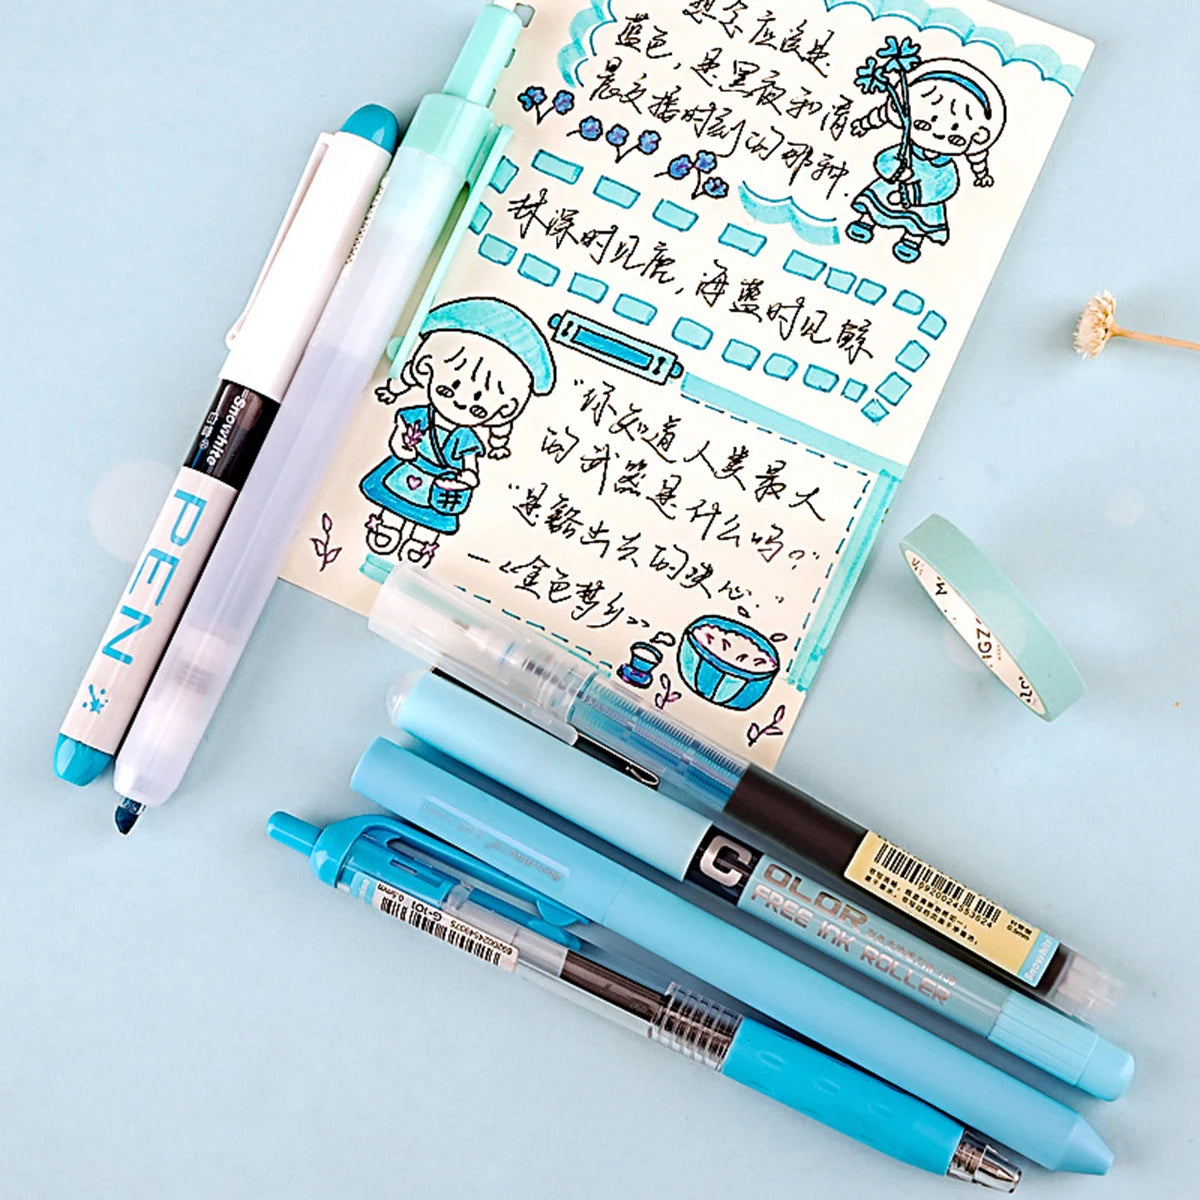 想怎应该是
蓝色，是黑夜和清
晨交接时刻的那种.
林深时见鹿，海蓝时见鲸
"你知道人类最大
的武器是什么吗?"
"是豁出去的决心."
—《金色梦乡》
Snowhite
白雪
PEN
COLOR
FREE INK ROLLER
G-101 0.5mm
6920024549375
6920024553624
0.5mm
Snowhite